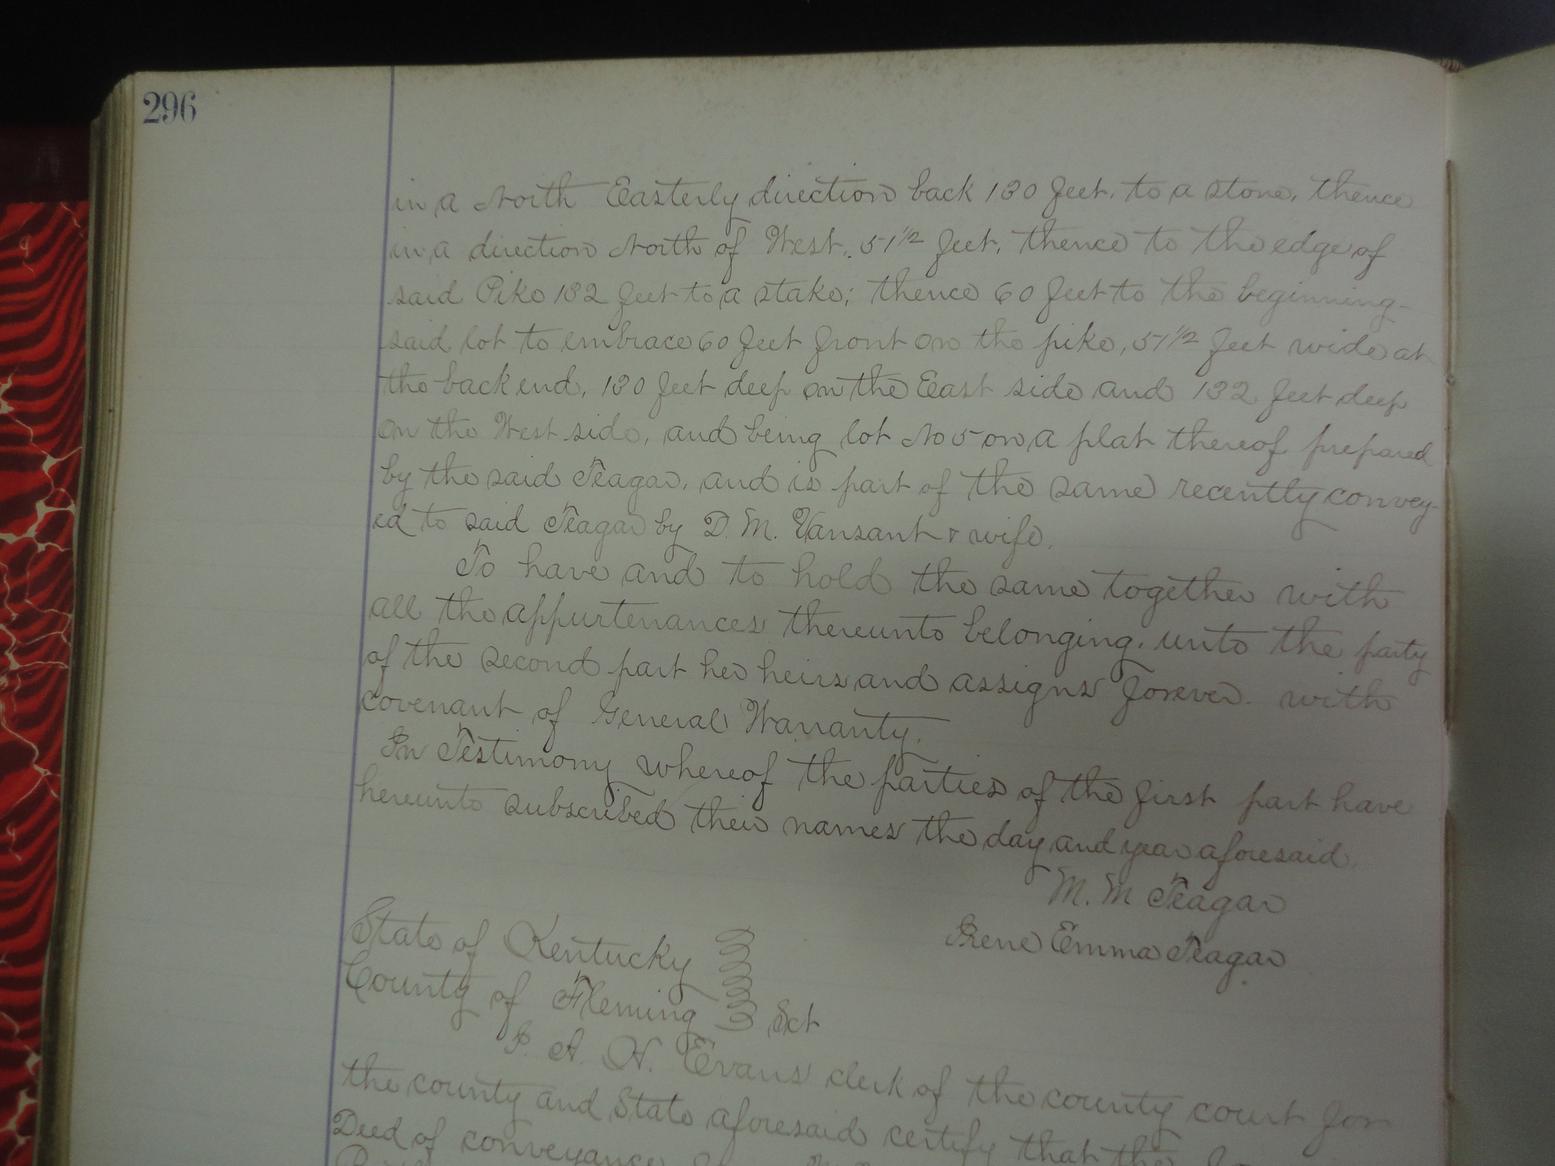 296
in a North Easterly direction back 130 feet, to a stone, thence
in a direction North of West, 51 1/2 feet, thence to the edge of
said Pike 132 feet to a stake; thence 60 feet to the beginning-
said lot to embrace 60 feet front on the pike, 51 1/2 feet wide at
the back end, 130 feet deep on the East side and 132 feet deep
on the West side, and being lot No 5 on a plat thereof prepared
by the said Teagar, and is part of the same recently convey-
ed to said Teagar by D. M. Vansant & wife.
To have and to hold the same together with
all the appurtenances thereunto belonging, unto the party
of the second part her heirs and assigns forever. with
covenant of General Warranty.
In Testimony whereof the parties of the first part have
hereunto subscribed their names the day and year aforesaid.
M. M Teagar
Irene Emma Teagar
State of Kentucky
County of Fleming Sct
I. A. N. Evans clerk of the county court for
the county and State aforesaid certify that the
Deed of conveyance